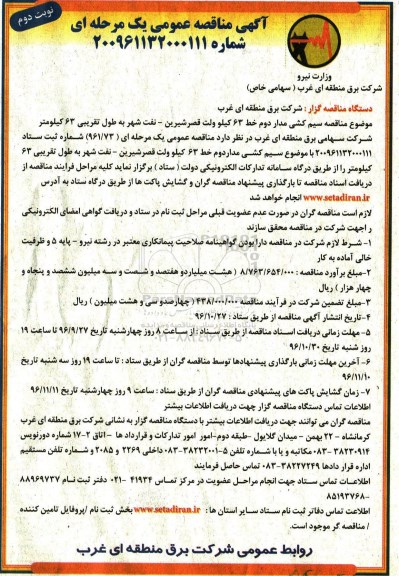 نوبت دوم
آگهی مناقصه عمومی یک مرحله ای
شماره ۲۰۰۹۶۱۱۳۲۰۰۰۱۱۱
وزارت نیرو
شرکت برق منطقه ای غرب ( سهامی خاص)
دستگاه مناقصه گزار : شرکت برق منطقه ای غرب
موضوع مناقصه سیم کشی مدار دوم خط ۶۳ کیلو ولت قصرشیرین - نفت شهر به طول تقریبی ۶۳ کیلومتر
شرکت سهامی برق منطقه ای غرب در نظر دارد مناقصه عمومی یک مرحله ای ( ۹۶۱/۷۳) شماره ثبت ستاد
۲۰۰۹۶۱۱۳۲۰۰۰۱۱۱ با موضوع سیم کشی مداردوم خط ۶۳ کیلو ولت قصرشیرین - نفت شهر به طول تقریبی ۶۳
کیلومتر را از طریق درگاه سامانه تدارکات الکترونیکی دولت ( ستاد ) برگزار نماید کلیه مراحل فرایند مناقصه از
دریافت اسناد مناقصه تا بارگذاری پیشنهاد مناقصه گران و گشایش پاکت ها از طریق درگاه ستاد به آدرس
www.setadiran.ir انجام خواهد شد
لازم است مناقصه گران در صورت عدم عضویت قبلی مراحل ثبت نام در ستاد و دریافت گواهی امضای الکترونیکی
را جهت شرکت در مناقصه محقق سازند
۱- شرط لازم شرکت در مناقصه دارا بودن گواهینامه صلاحیت پیمانکاری معتبر در رشته نیرو - پایه ۵ و ظرفیت
خالی آماده به کار
۲-مبلغ برآورد مناقصه : ۸/۷۶۳/۶۵۴/۰۰۰ ( هشت میلیاردو هفتصد و شصت و سه میلیون ششصد و پنجاه و
چهار هزار ) ریال
۳-مبلغ تضمین شرکت در فرآیند مناقصه ۴۳۸/۰۰۰/۰۰۰ ( چهارصدو سی و هشت میلیون ) ریال
۴-تاریخ انتشار آگهی مناقصه از طریق ستاد : ۹۶/۱۰/۲۷
۵- مهلت زمانی دریافت اسناد مناقصه از طریق ستاد : از ساعت ۸ روز چهارشنبه تاریخ ۹۶/۹/۲۷ تا ساعت ۱۹
روز شنبه تاریخ ۹۶/۱۰/۳۰
۶- آخرین مهلت زمانی بارگذاری پیشنهادها توسط مناقصه گران از طریق ستاد : تا ساعت ۱۹ روز سه شنبه تاریخ
۹۶/۱۱/۱۰
۷- زمان گشایش پاکت های پیشنهادی مناقصه گران از طریق ستاد : ساعت ۹ روز چهارشنبه تاریخ ۹۶/۱۱/۱۱
اطلاعات تماس دستگاه مناقصه گزار جهت دریافت اطلاعات بیشتر
مناقصه گران می توانند جهت دریافت اطلاعات بیشتر با دستگاه مناقصه گزار به نشانی شرکت برق منطقه ای غرب
کرمانشاه - ۲۲ بهمن - میدان گلایول -طبقه دوم-امور امور تدارکات و قرارداد ها - اتاق ۲-۱۷ شماره دورنویس
۳۸۲۳۰۹۱۴-۰۸۳ مکاتبه و یا با شماره تلفن ۵-۳۸۲۳۲۰۰۱-۰۸۳داخلی ۲۲۶۹ و ۲۰۸۵ و شماره تلفن مستقیم
اداره قرار دادها ۳۸۲۲۷۲۴۹-۰۸۳ تماس حاصل فرمایند
اطلاعات تماس ستاد جهت انجام مراحل عضویت در مرکز تماس ۴۱۹۳۴ -۰۲۱ دفتر ثبت نام ۸۸۹۶۹۷۳۷
-۸۵۱۹۳۷۶۸
اطلاعات تماس دفاتر ثبت نام ستاد سایر استان ها : www.setadiran.ir بخش ثبت نام /پروفایل تامین کننده
/ مناقصه گر موجود است.
روابط عمومی شرکت برق منطقه ای غرب